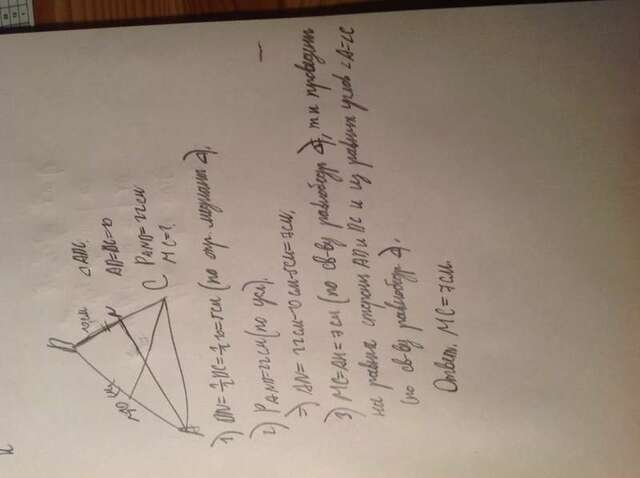 D
10 см
N
10 см
A
C
△ADC.
AD=DC=10
P AND=22см
MC=?
1) DN= 1/2 DC= 1/2 10=5см (по опр. медианы △).
2) P AND=22см (по усл).
=> AN= 22см-10см-5см=7см.
3) MC=AN=7см (по св-ву равнобедр △), т к проведены
на равных стороны AD и DC и из равных углов ∠A=∠C
(по св-ву равнобедр △).
Ответ. MC=7см.